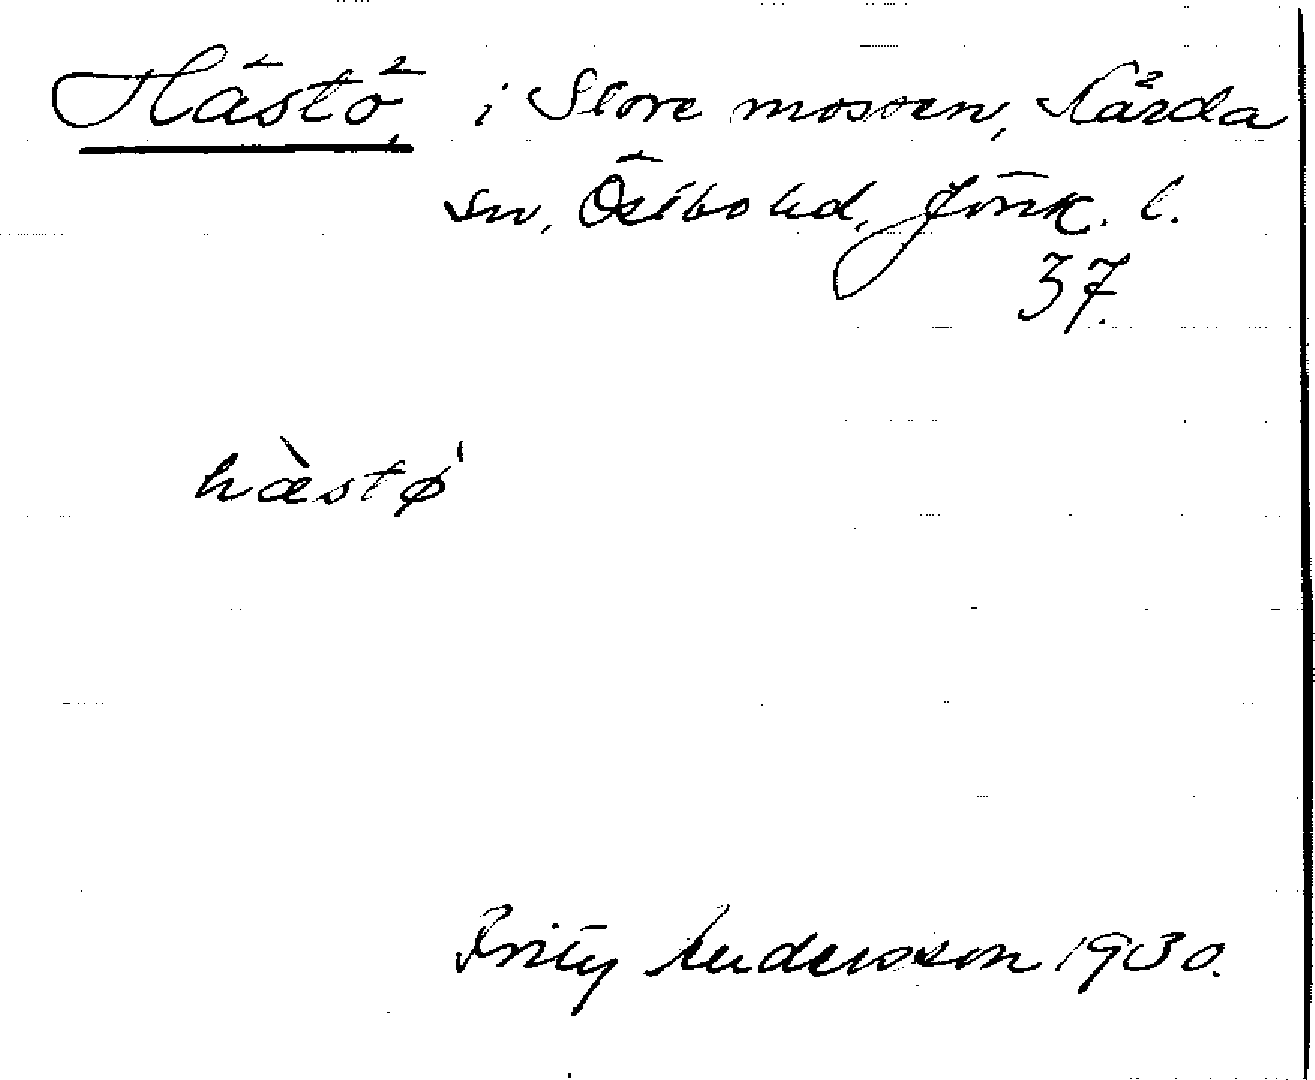 Hästö, i Store mossen, Kärda
sn, Östbo hd, Jönk. l.
37.
hæ̀stø'
Fritz Andersson 1930.